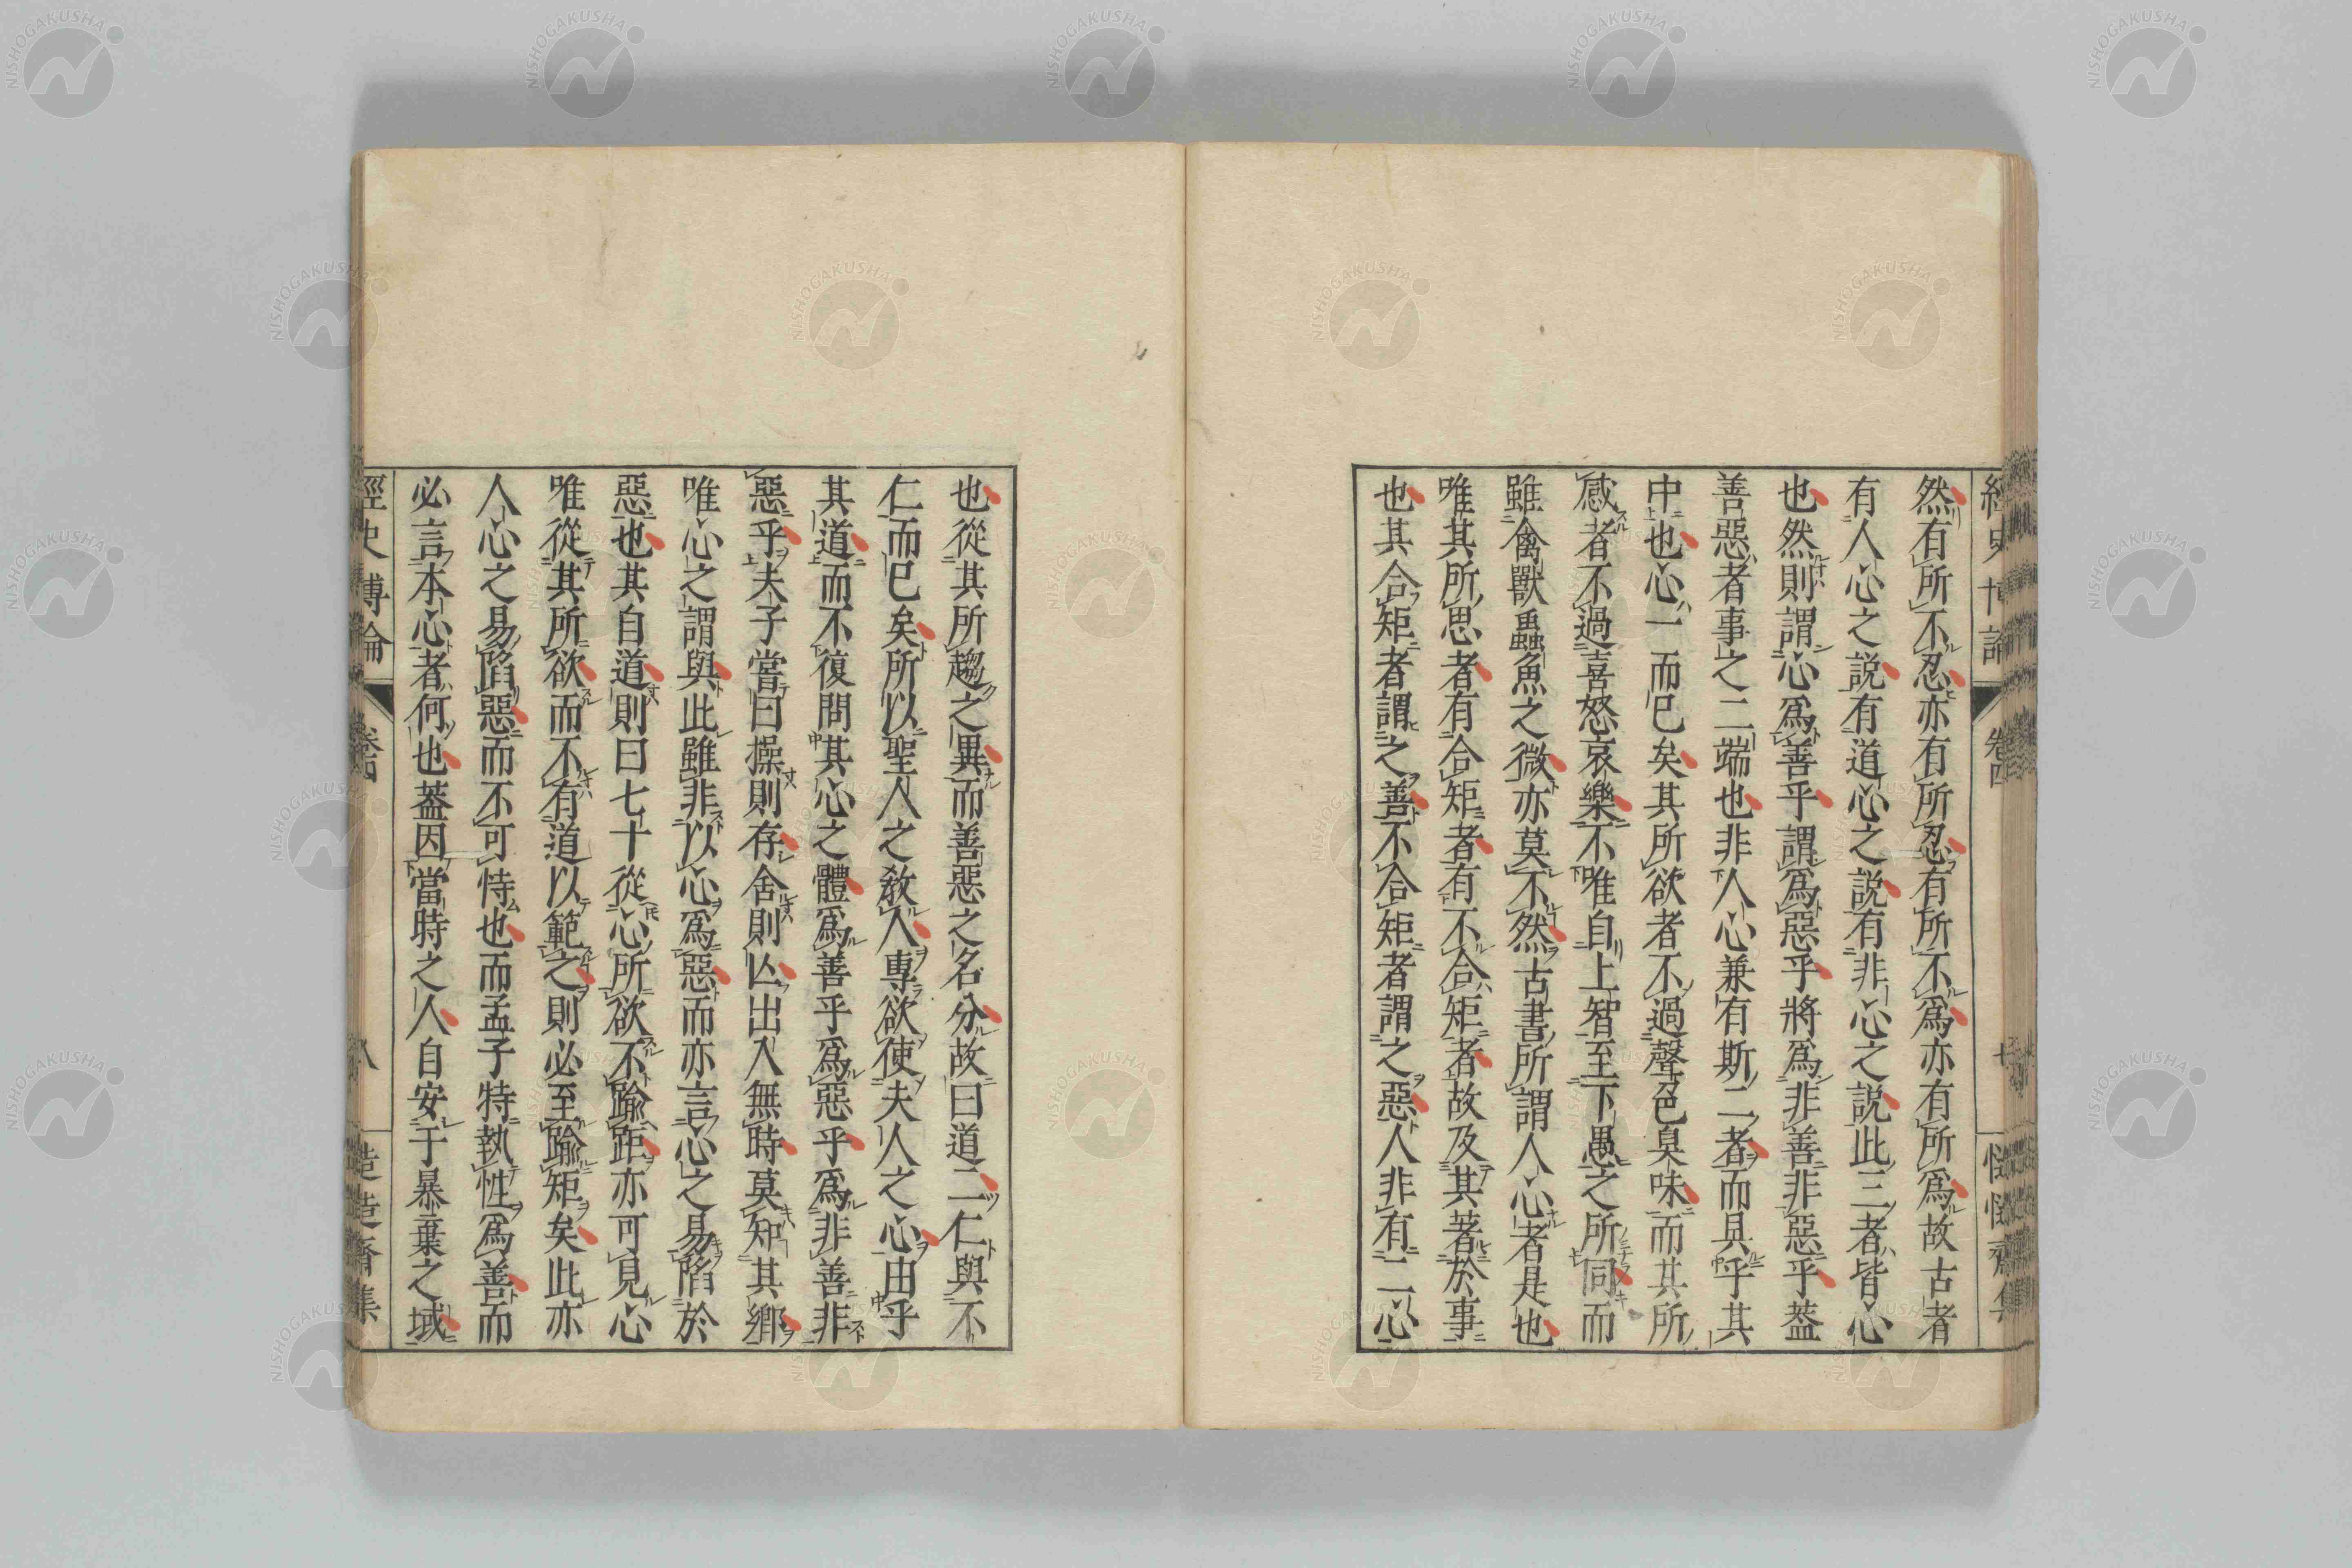 然有所不忍亦有所忍有所不爲亦有所爲故古者
有人心之説有道心之説有非心之説此三者皆心
也然則謂心爲善乎謂爲惡乎將爲非善非惡乎蓋
善惡者事之二端也非人心兼有斯二者而具乎其
中也心一而已矣其所欲者不過聲色臭味而其所
感者不過喜怒哀樂不唯自上智至下愚之所同而
雖禽獸蟲魚之微亦莫不然古書所謂人心者是也
唯其所思者有合矩者有不合矩者故及其著於事
也其合矩者謂之善不合矩者謂之惡人非有二心
也從其所趨之異而善惡之名分故曰道二仁與不
仁而已矣所以聖人之敎人專欲使夫人之心由乎
其道而不復問其心之體爲善乎爲惡乎爲非善非
惡乎夫子嘗曰操則存舍則亾出入無時莫知其鄕
唯心之謂與此雖非以心爲惡而亦言心之易陷於
惡也其自道則曰七十從心所欲不踰距亦可見心
唯從其所欲而不有道以範之則必至踰矩矣此亦
人心之易陷惡而不可恃也而孟子特執性爲善而
必言本心者何也蓋因當時之人自安于暴棄之域
經史博論
卷四
八